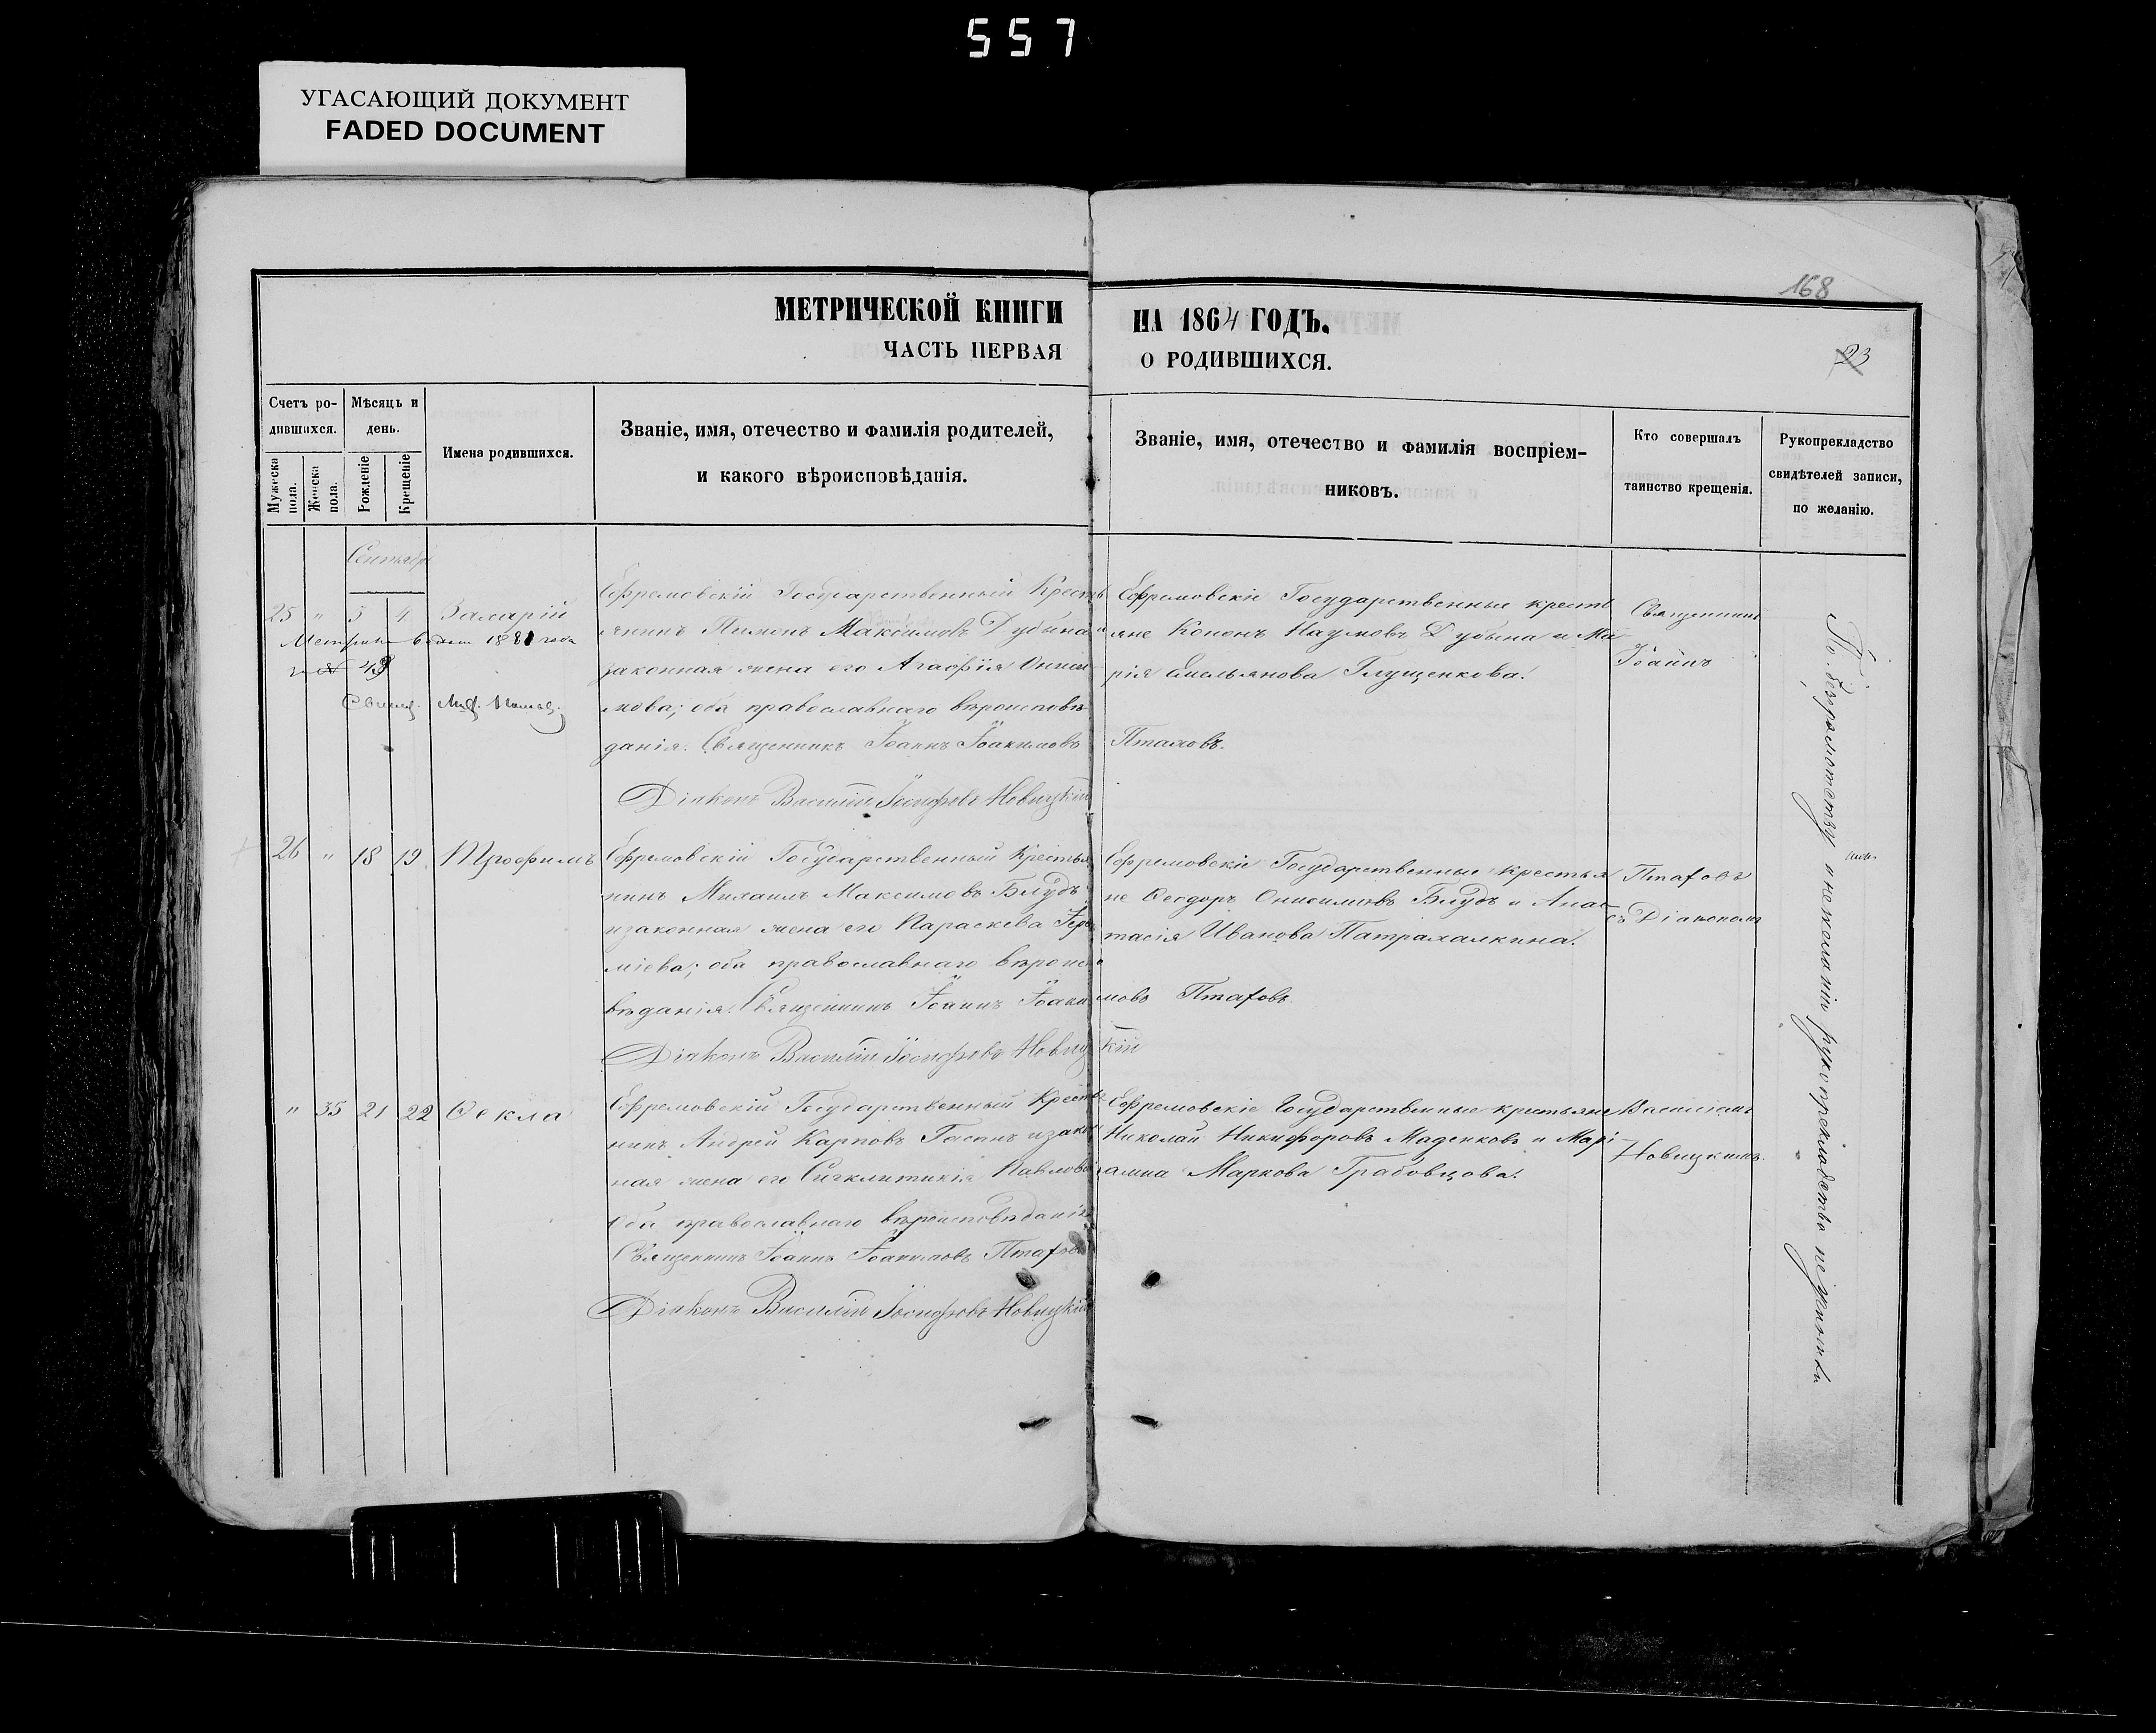 557
УГАСАЮЩИЙ ДОКУМЕНТ
FADED DOCUMENT
168
МЕТРИЧЕСКОЙ КНИГИ НА 1864 ГОДЪ.
ЧАСТЬ ПЕРВАЯ О РОДИВШИХСЯ.
23
Счетъ ро-
дившихся.
Мужеска пола.
Женска пола.
Мѣсяцъ и
день.
Рожденіе
Крещеніе
Имена родившихся.
Званіе, имя, отечество и фамилія родителей,
и какого вѣроисповѣданія.
Званіе, имя, отечество и фамилія воспріем-
никовъ.
Кто совершалъ
таинство крещенія.
Рукоприкладство
свидѣтелей записи,
по желанію.
Сентябрь
25 " 3 4 Захарій
Метрика выдан 1881 года
Ефремовскій Государственный Кресть
янинъ Пименъ Максимовъ Дубына и
законная жена его Агафія Ониси
мова; оба православнаго вѣроисповѣ
данія. Священникъ Іоаннъ Іоакимовъ Птаховъ.
Діаконъ Василій Іосифовъ Новицкій
Ефремовскіе Государственные кресть
яне Кононъ Наумовъ Дубына и Ма
рія Емельянова Глущенкова.
Священникъ
Іоаннъ
26 " 18 19 Трофимъ
Ефремовскій Государственный Крестья
нинъ Михаилъ Максимовъ Блудъ
и законная жена его Параскева Іере
міева; оба православнаго вѣроиспо
вѣданія. Священникъ Іоаннъ Іоакимовъ Птаховъ
Діаконъ Василій Іосифовъ Новицкій
Ефремовскіе Государственные крестья
не Ѳеодоръ Онисимовъ Блудъ и Анас
тасія Иванова Патрахалкина.
Птаховъ
съ Діакономъ
" 35 21 22 Ѳекла
Ефремовскій Государственный Крестья
нинъ Андрей Карповъ Гасанъ и закон
ная жена его Сигклитикія Павлова
оба православнаго вѣроисповѣданія
Священникъ Іоаннъ Іоакимовъ Птаховъ
Діаконъ Василій Іосифовъ Новицкій
Ефремовскіе Государственные крестьяне
Николай Никифоровъ Маденковъ и Марі
амна Маркова Грабовцова.
Василіемъ
Новицкимъ.
По безграмотству и нежеланію рукоприкладства не учинили